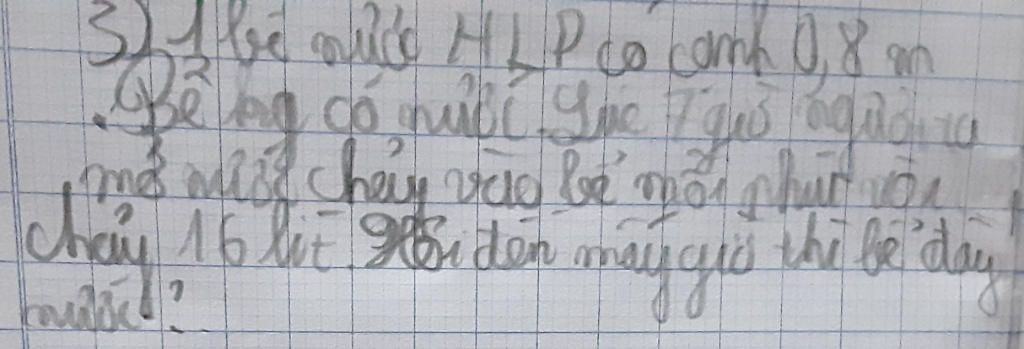 3) 1 bể nước HLP có cạnh 0,8 m
. Bể có nước. Lúc 7 giờ người ta
mở nước chảy vào bể mỗi phút vòi
chảy 16 lít. Hỏi đến mấy giờ thì bể đầy
nước?